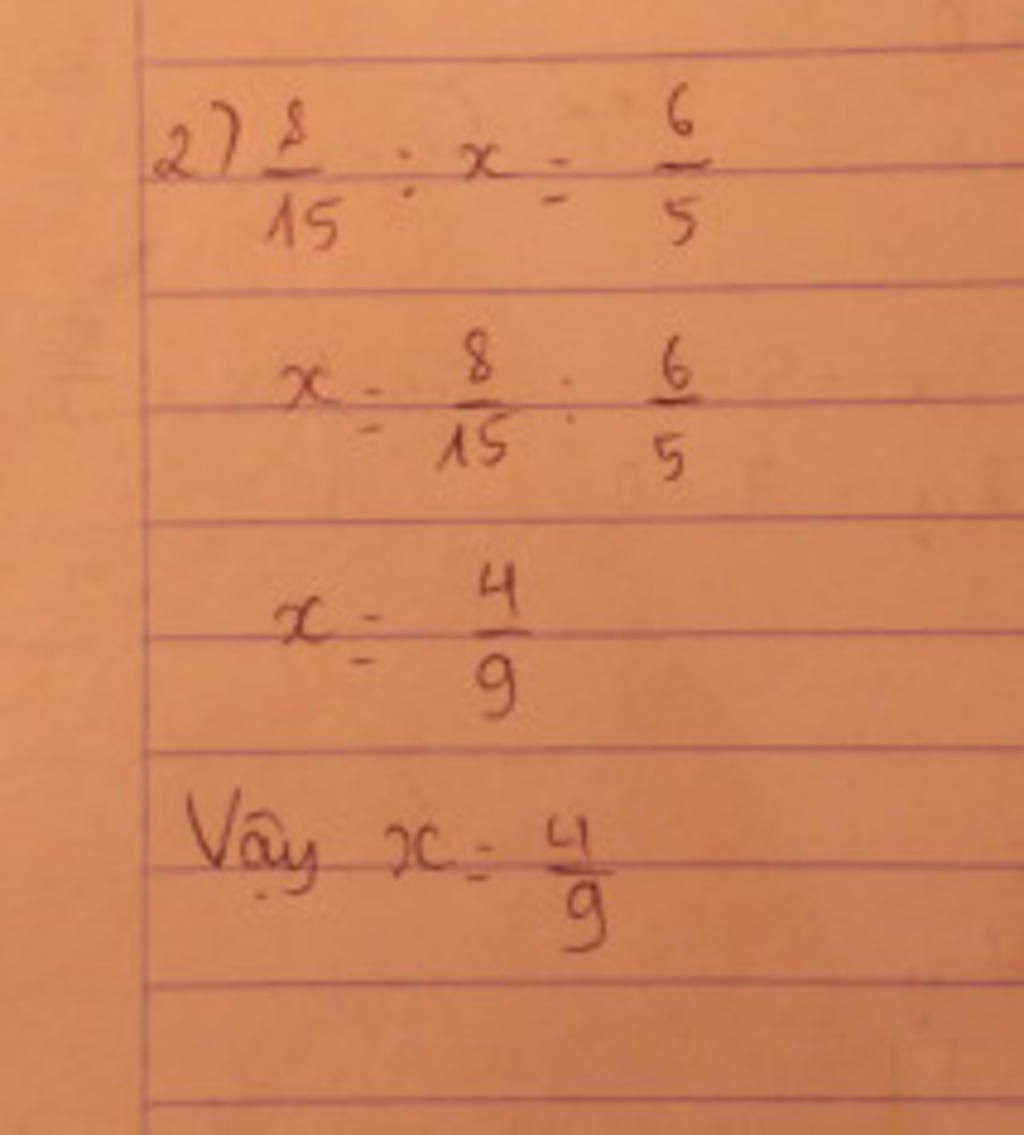 2) 8/15 : x = 6/5
x = 8/15 : 6/5
x = 4/9
Vậy x = 4/9